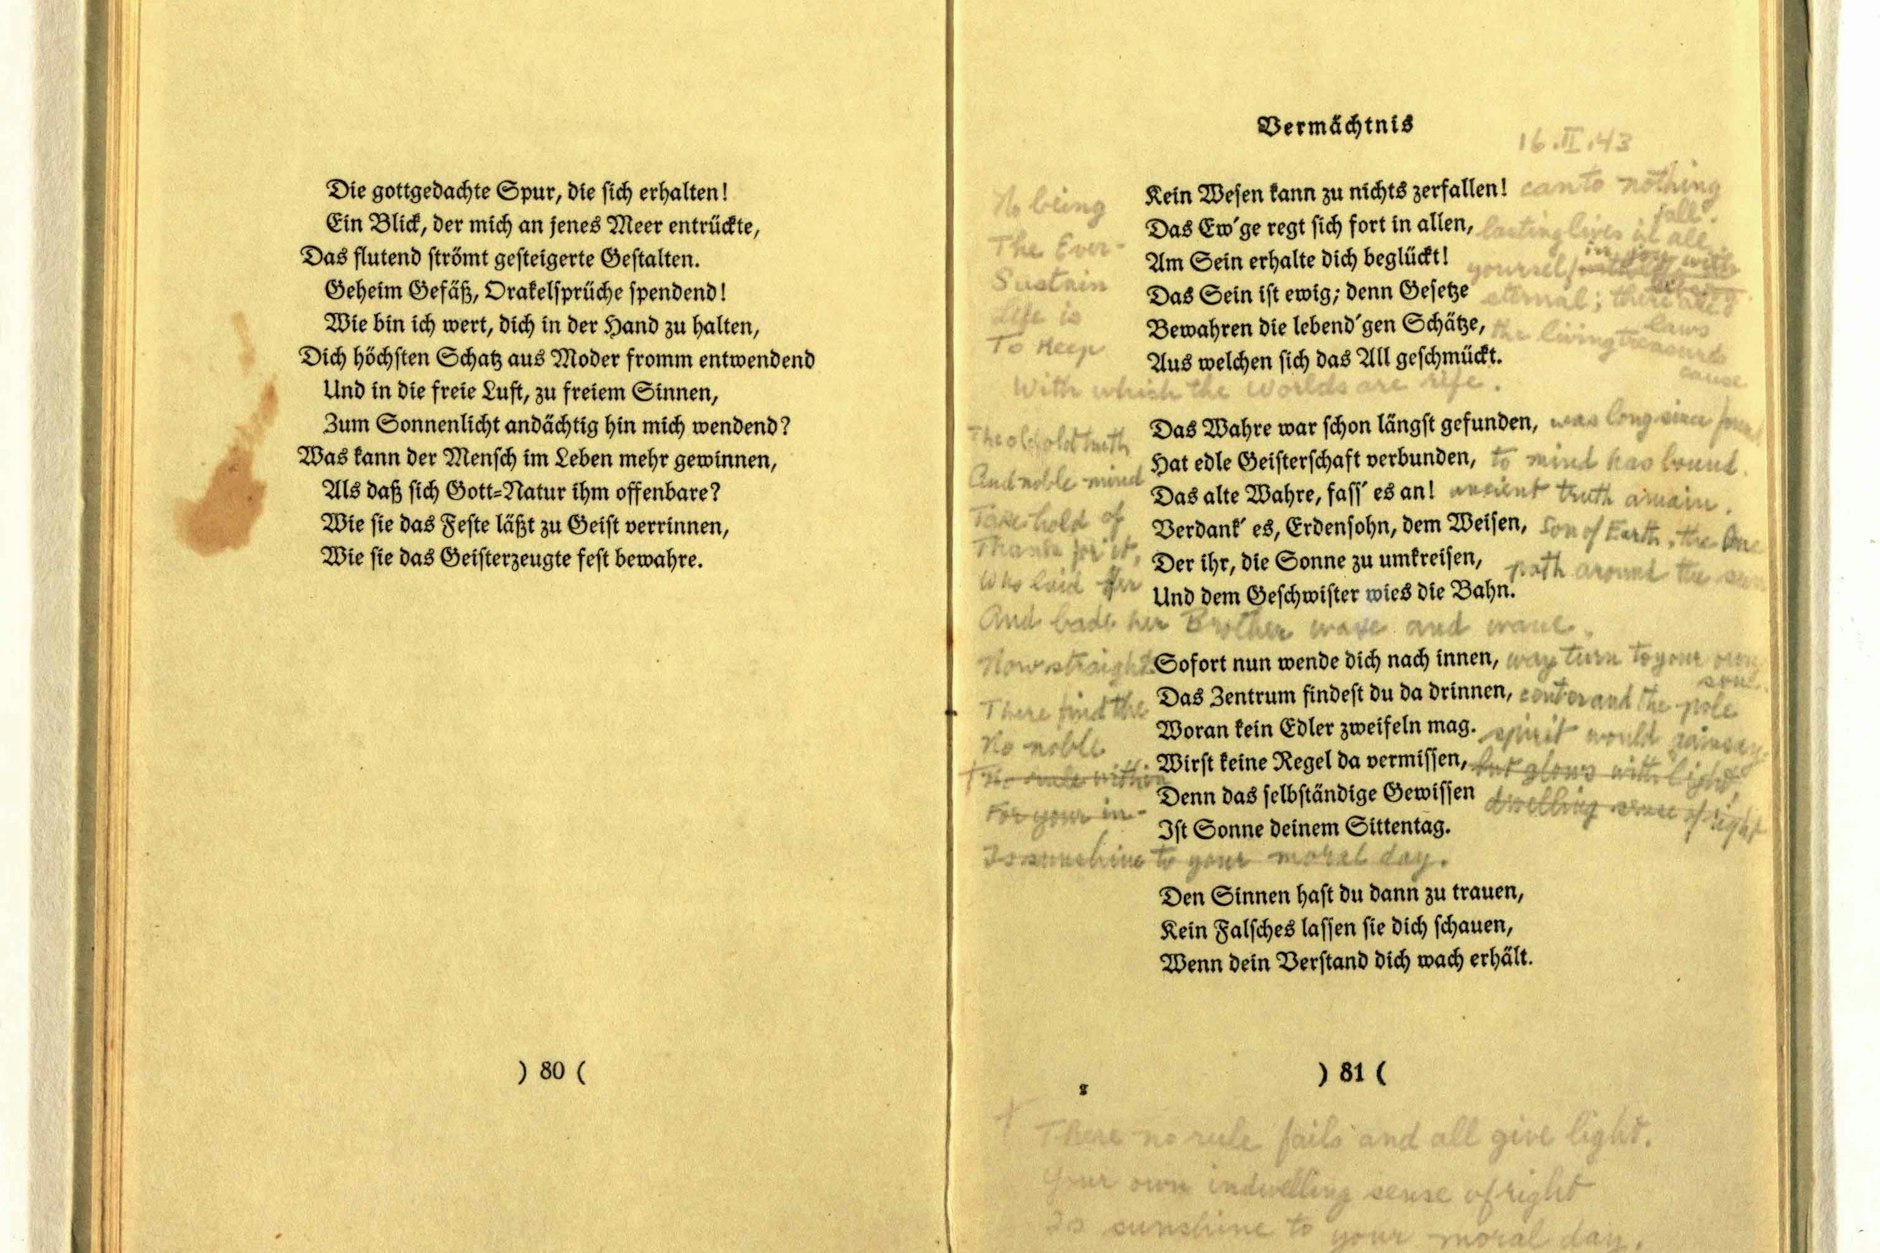 Die gottgedachte Spur, die sich erhalten!
Ein Blick, der mich an jenes Meer entrückte,
Das flutend strömt gesteigerte Gestalten.
Geheim Gefäß, Orakelsprüche spendend!
Wie bin ich wert, dich in der Hand zu halten,
Dich höchsten Schatz aus Moder fromm entwendend
Und in die freie Luft, zu freiem Sinnen,
Zum Sonnenlicht andächtig hin mich wendend?
Was kann der Mensch im Leben mehr gewinnen,
Als daß sich Gott-Natur ihm offenbare?
Wie sie das Feste läßt zu Geist verrinnen,
Wie sie das Geisterzeugte fest bewahre.
) 80 (
Vermächtnis
16.II.43
No being Kein Wesen kann zu nichts zerfallen! can to nothing
fall.
The Ever- Das Ew'ge regt sich fort in allen, lasting lives in all,
in joy with
Sustain Am Sein erhalte dich beglückt! yourself
Life is Das Sein ist ewig; denn Gesetze eternal; there are
laws
To Keep Bewahren die lebend'gen Schätze, the living treasures
cause
Aus welchen sich das All geschmückt.
With which the worlds are rife.
The old old truth Das Wahre war schon längst gefunden, was long since found
And noble mind Hat edle Geisterschaft verbunden, to mind has bound.
Take hold of Das alte Wahre, fass' es an! ancient truth amain.
Thank for it, Verdank' es, Erdensohn, dem Weisen, Son of Earth, the One
Who laid her Der ihr, die Sonne zu umkreisen, path around the sun
Und dem Geschwister wies die Bahn.
And bade her Brother wax and wane.
Now straight Sofort nun wende dich nach innen, way turn to your own
soul.
There find the Das Zentrum findest du da drinnen, center and the pole
No noble Woran kein Edler zweifeln mag. spirit would gainsay.
† No rule within Wirst keine Regel da vermissen, but glows with light,
For your in- Denn das selbständige Gewissen dwelling sense of right
Ist Sonne deinem Sittentag.
Is sunshine to your moral day.
Den Sinnen hast du dann zu trauen,
Kein Falsches lassen sie dich schauen,
Wenn dein Verstand dich wach erhält.
) 81 (
† There no rule fails and all give light.
Your own indwelling sense of right
Is sunshine to your moral day.